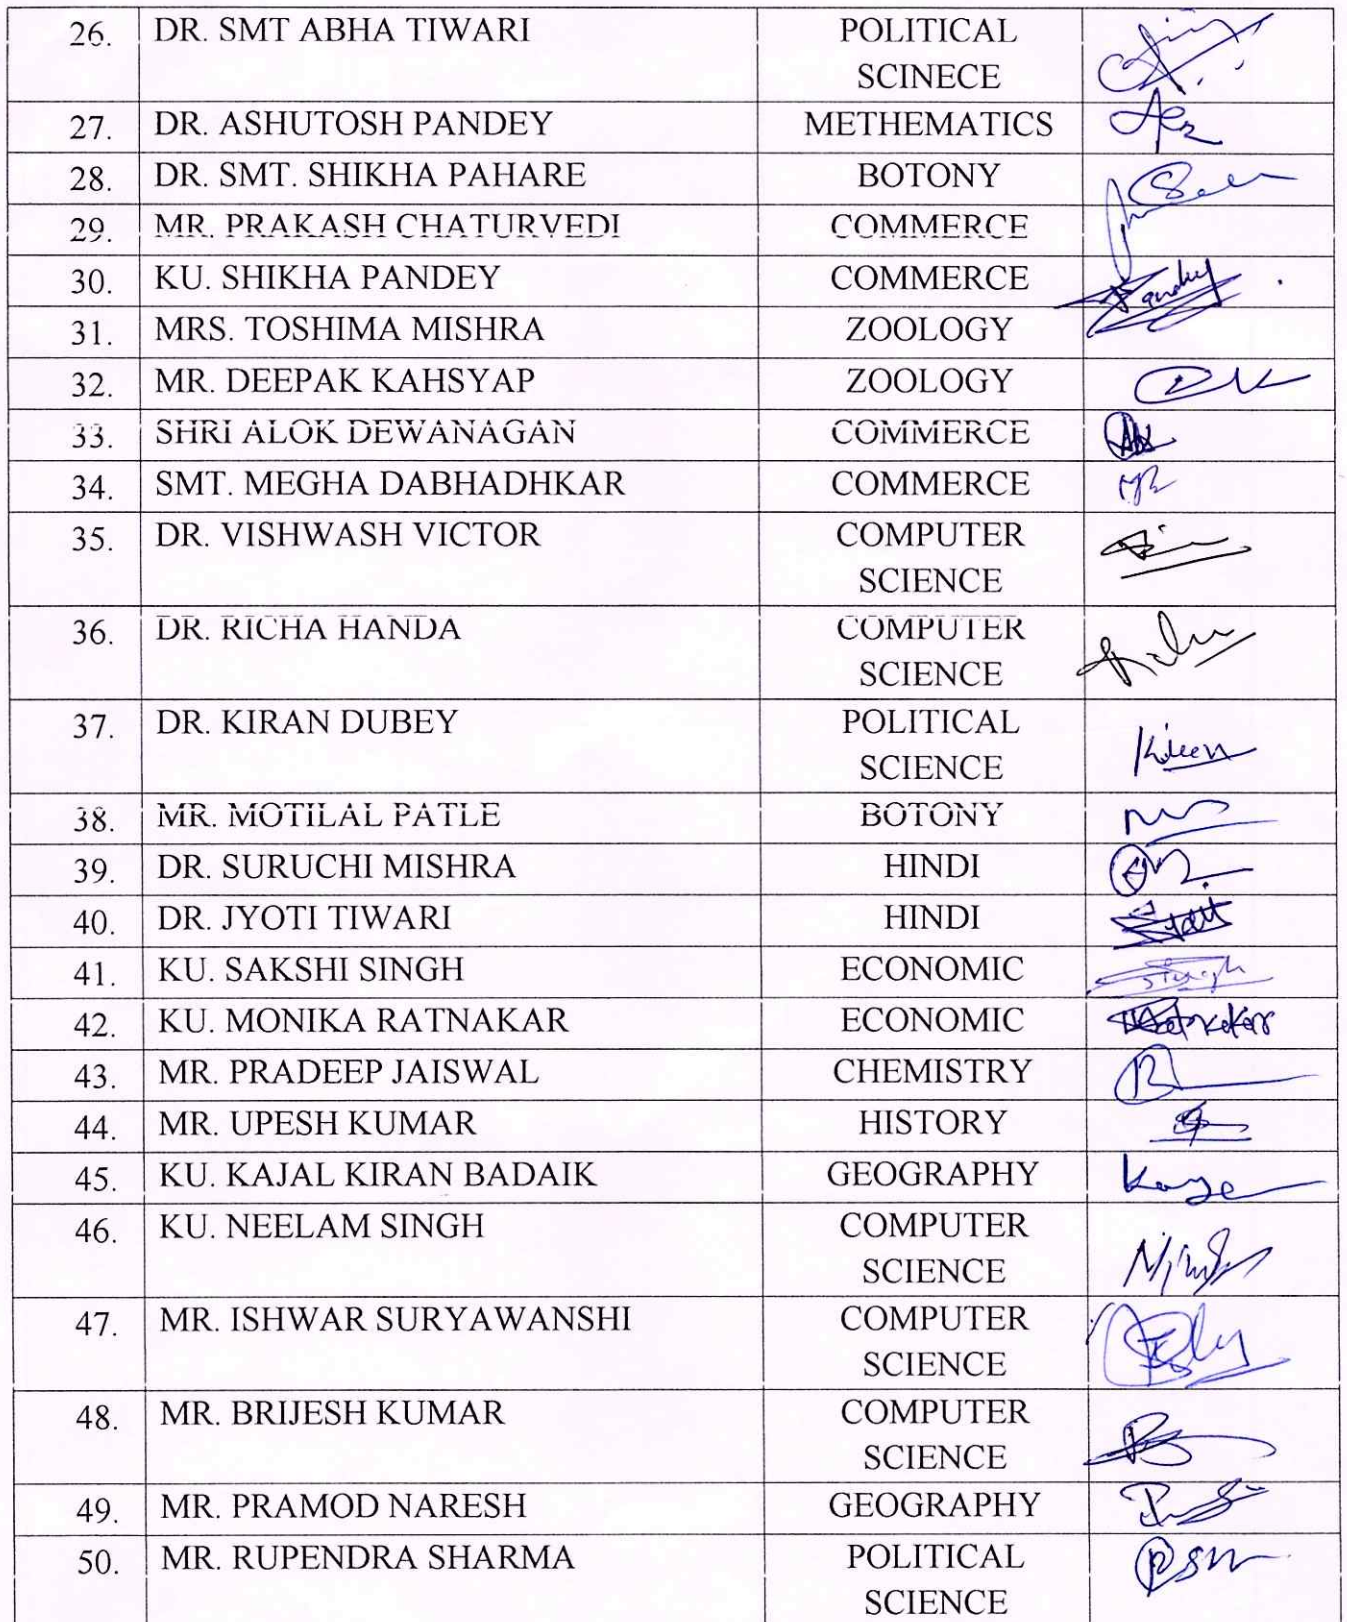 26. DR. SMT ABHA TIWARI POLITICAL
SCINECE
27. DR. ASHUTOSH PANDEY METHEMATICS
28. DR. SMT. SHIKHA PAHARE BOTONY
29. MR. PRAKASH CHATURVEDI COMMERCE
30. KU. SHIKHA PANDEY COMMERCE Pandey
31. MRS. TOSHIMA MISHRA ZOOLOGY
32. MR. DEEPAK KAHSYAP ZOOLOGY
33. SHRI ALOK DEWANAGAN COMMERCE
34. SMT. MEGHA DABHADHKAR COMMERCE
35. DR. VISHWASH VICTOR COMPUTER
SCIENCE
36. DR. RICHA HANDA COMPUTER
SCIENCE
37. DR. KIRAN DUBEY POLITICAL
SCIENCE
38. MR. MOTILAL PATLE BOTONY
39. DR. SURUCHI MISHRA HINDI
40. DR. JYOTI TIWARI HINDI
41. KU. SAKSHI SINGH ECONOMIC Singh
42. KU. MONIKA RATNAKAR ECONOMIC
43. MR. PRADEEP JAISWAL CHEMISTRY
44. MR. UPESH KUMAR HISTORY
45. KU. KAJAL KIRAN BADAIK GEOGRAPHY
46. KU. NEELAM SINGH COMPUTER
SCIENCE
47. MR. ISHWAR SURYAWANSHI COMPUTER
SCIENCE
48. MR. BRIJESH KUMAR COMPUTER
SCIENCE
49. MR. PRAMOD NARESH GEOGRAPHY
50. MR. RUPENDRA SHARMA POLITICAL
SCIENCE